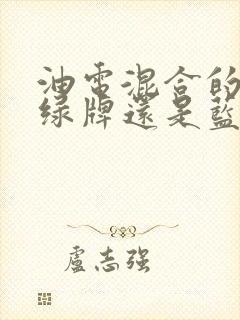 油電混合的
綠牌還是藍
盧志強